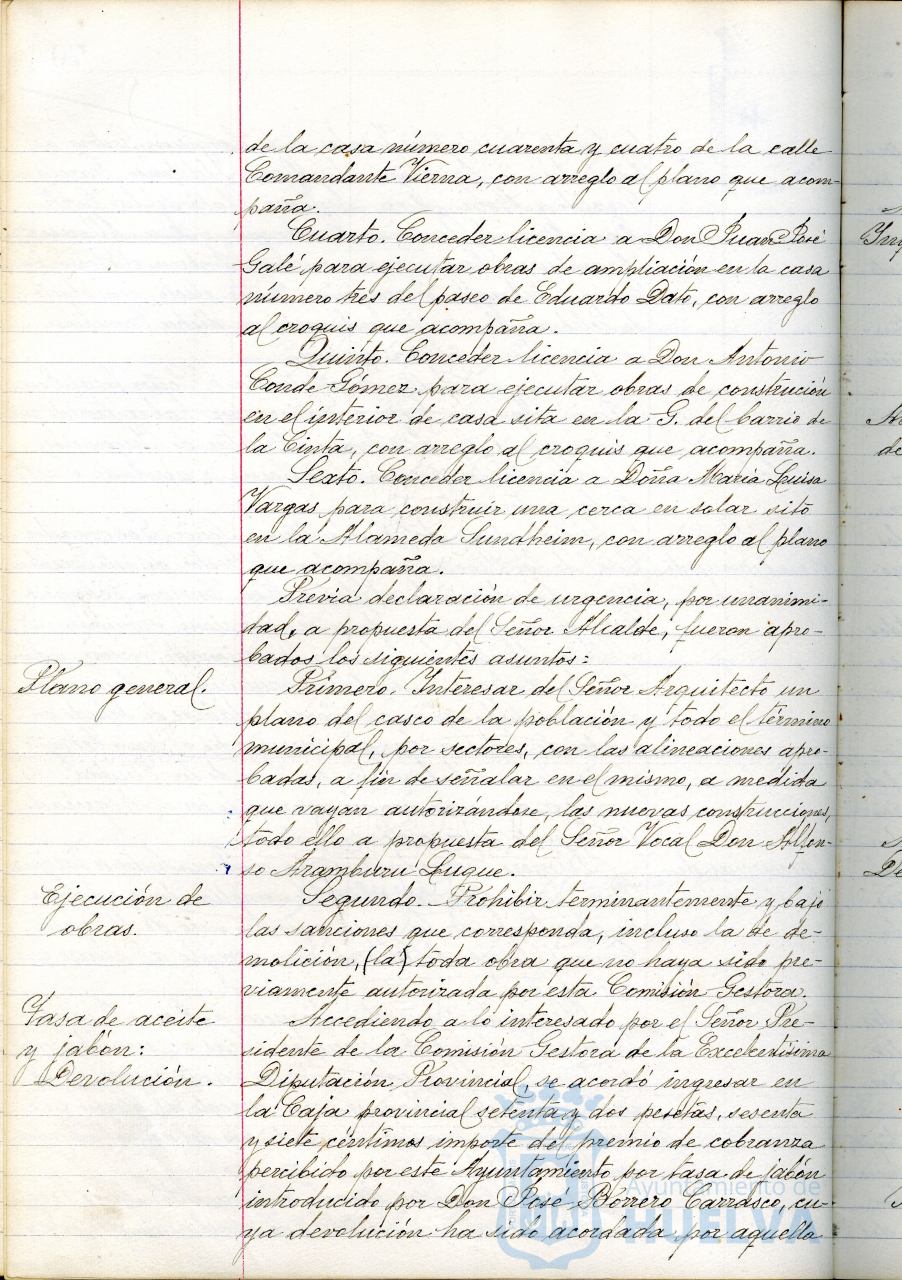 de la casa número cuarenta y cuatro de la calle
Comandante Vierna, con arreglo al plano que acom-
paña.
Cuarto. Conceder licencia a Don Juan José
Galé para ejecutar obras de ampliación en la casa
número tres del paseo de Eduardo Dato, con arreglo
al croquis que acompaña.
Quinto. Conceder licencia a Don Antonio
Conde Gómez para ejecutar obras de construción
en el interior de casa sita en la G. del barrio de
la Cinta, con arreglo al croquis que acompaña.
Sexto. Conceder licencia a Doña María Luisa
Vargas para construir una cerca en solar sito
en la Alameda Sundheim, con arreglo al plano
que acompaña.
Previa declaración de urgencia, por unanimi-
dad, a propuesta del Señor Alcalde, fueron apro-
bados los siguientes asuntos:
Plano general.
Primero. Interesar del Señor Arquitecto un
plano del casco de la población y todo el término
municipal, por sectores, con las alineaciones apro-
badas, a fin de señalar en el mismo, a medida
que vayan autorizándose, las nuevas construcciones,
todo ello a propuesta del Señor Vocal Don Alfon-
so Aramburu Luque.
Ejecución de
obras.
Segundo. Prohibir terminantemente y bajo
las sanciones que corresponda, incluso la de de-
molición, (la) toda obra que no haya sido pre-
viamente autorizada por esta Comisión Gestora.
Tasa de aceite
y jabón:
Devolución.
Accediendo a lo interesado por el Señor Pre-
sidente de la Comisión Gestora de la Excelentísima
Diputación Provincial se acordó ingresar en
la Caja provincial setenta y dos pesetas, sesenta
y siete céntimos importe del premio de cobranza
percibido por este Ayuntamiento por tasa de jabón
introducido por Don José Borrero Carrasco, cu-
ya devolución ha sido acordada por aquella
Ayuntamiento de
HUELVA